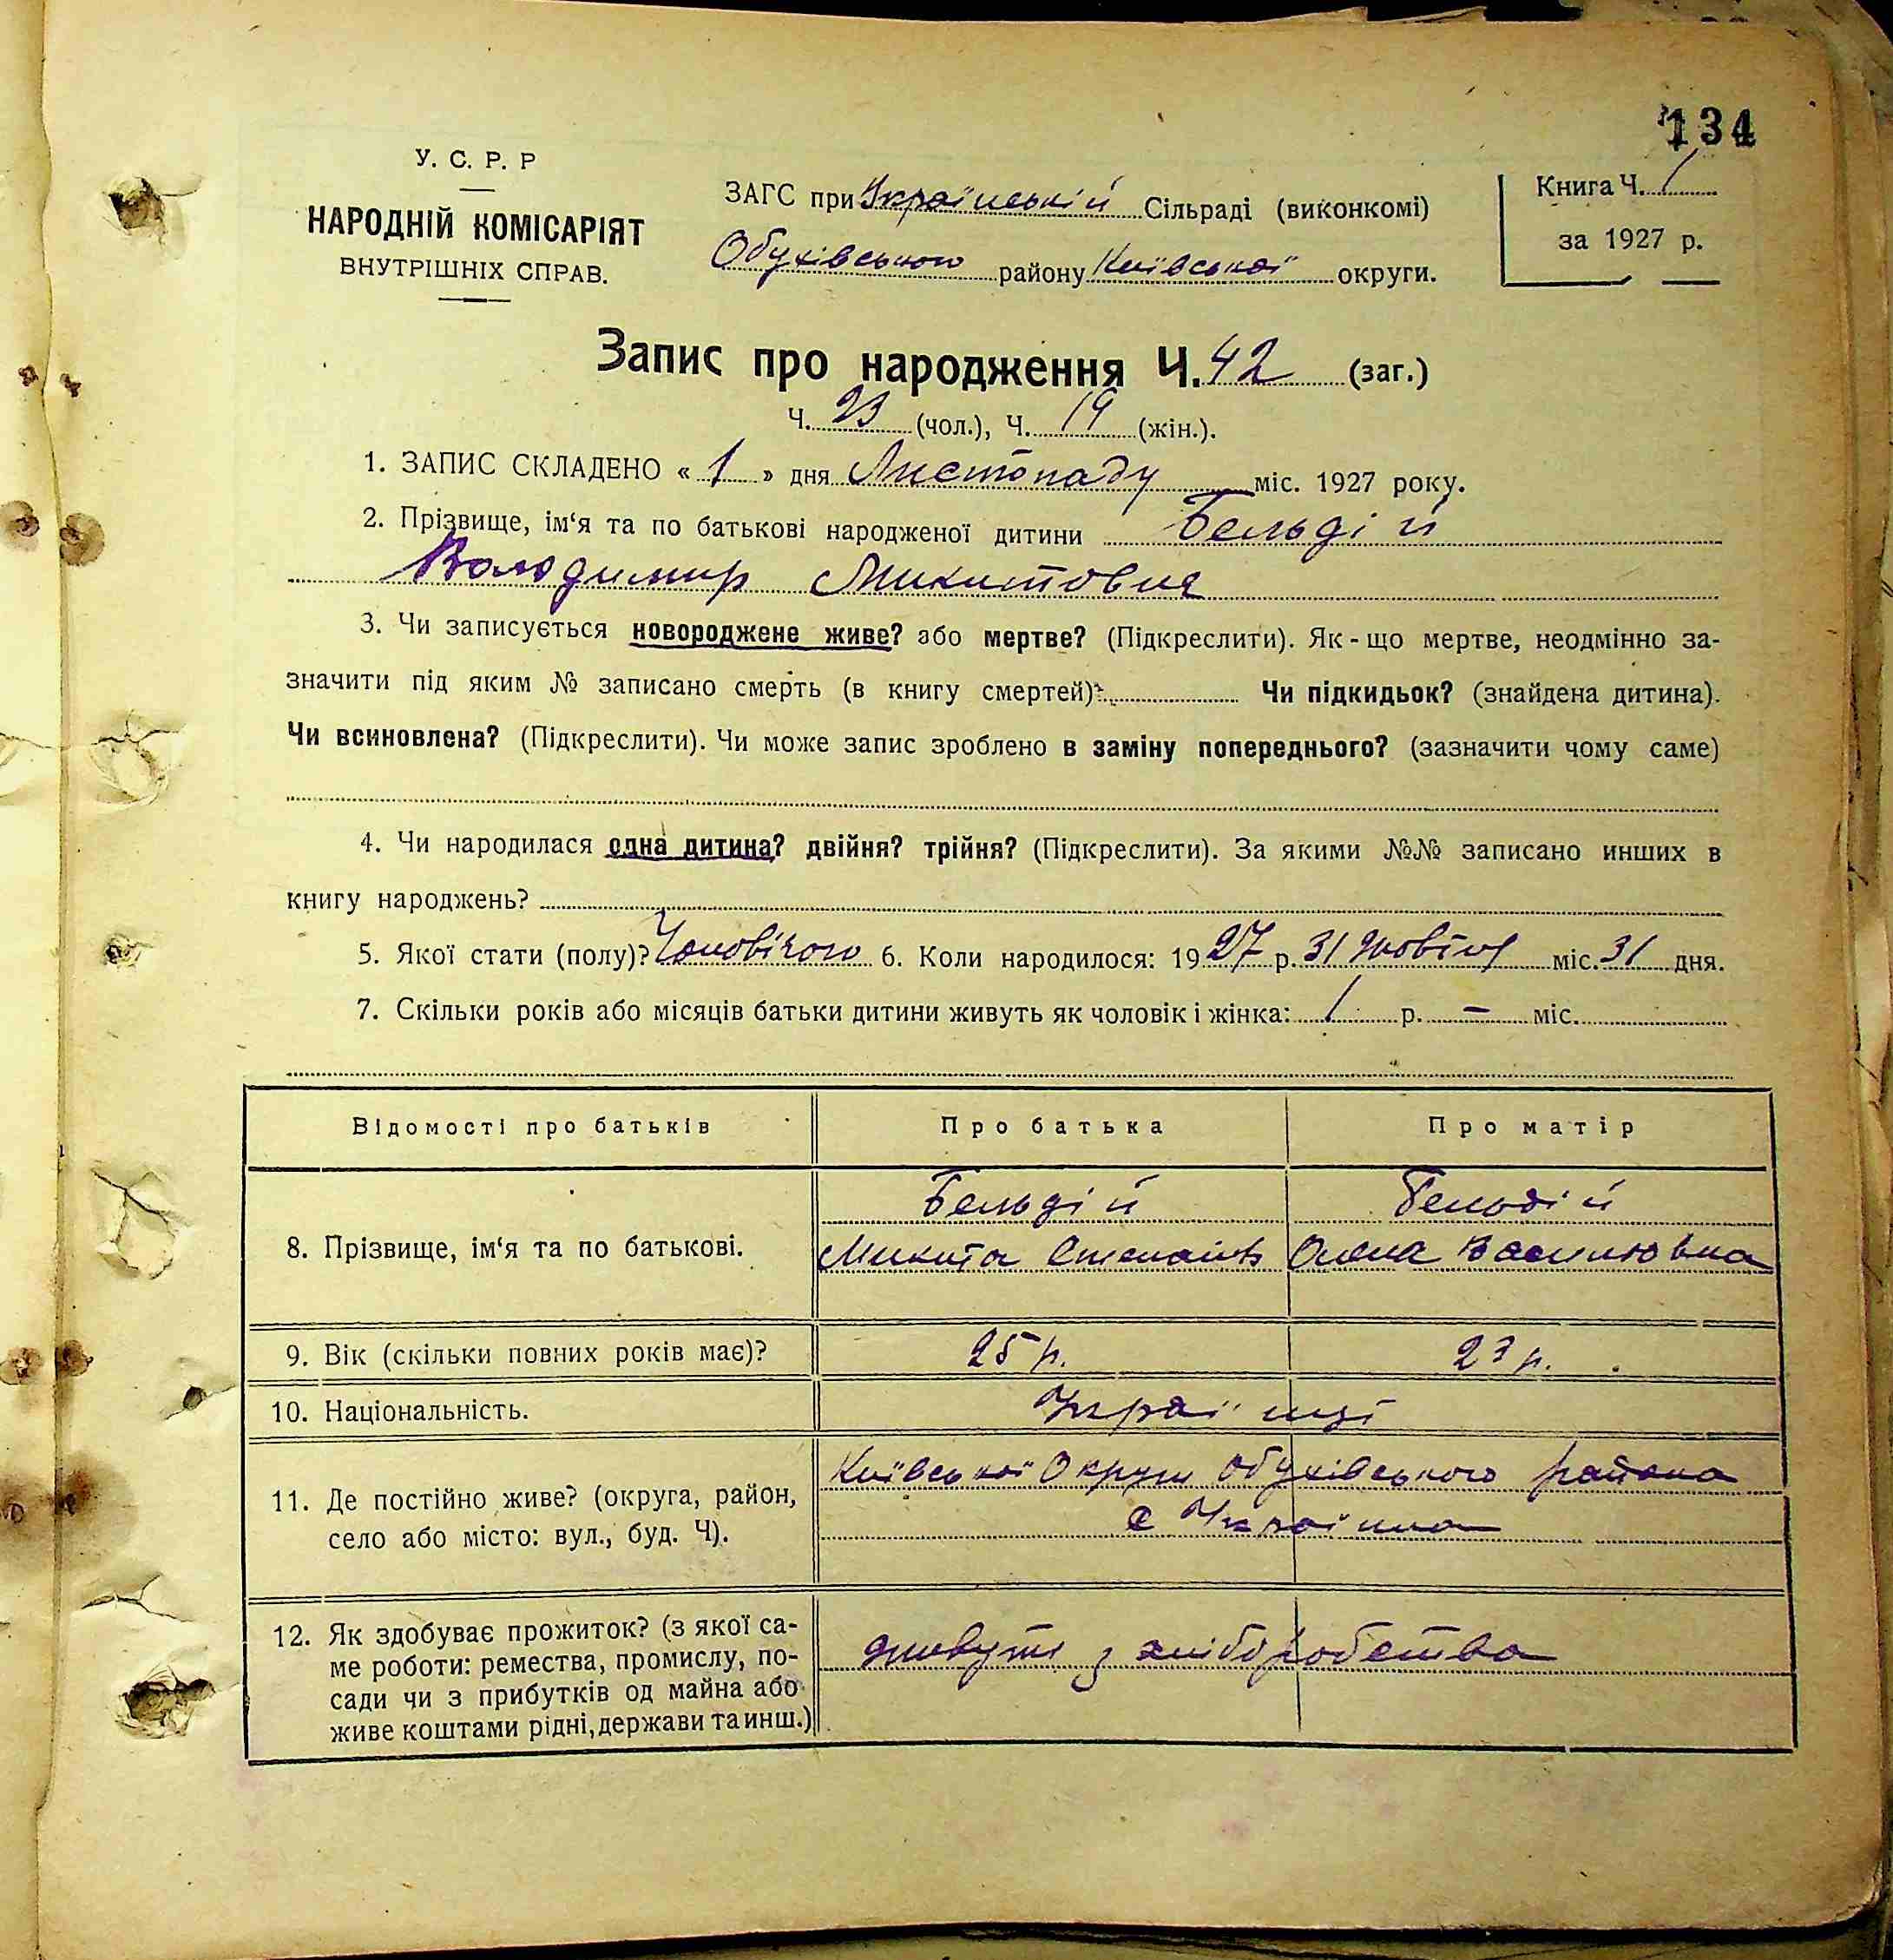 134
У. С. Р. Р
НАРОДНІЙ КОМІСАРІЯТ
ВНУТРІШНІХ СПРАВ.
ЗАГС при Українській Сільраді (виконкомі)
Обухівського району Київської округи.
Книга Ч. 1
за 1927 р.
Запис про народження Ч. 42 (заг.)
Ч. 23 (чол.), Ч. 19 (жін.).
1. ЗАПИС СКЛАДЕНО « 1 » дня Листопаду міс. 1927 року.
2. Прізвище, ім‘я та по батькові народженої дитини Бельдій
Володимир Микитович
3. Чи записується новороджене живе? або мертве? (Підкреслити). Як-що мертве, неодмінно за-
значити під яким № записано смерть (в книгу смертей) Чи підкидьок? (знайдена дитина).
Чи всиновлена? (Підкреслити). Чи може запис зроблено в заміну попереднього? (зазначити чому саме)
4. Чи народилася одна дитина? двійня? трійня? (Підкреслити). За якими №№ записано инших в
книгу народжень?
5. Якої стати (полу)? Чоловічого 6. Коли народилося: 1927 р. 31 Жовтня міс. 31 дня.
7. Скільки років або місяців батьки дитини живуть як чоловік і жінка: 1 р. – міс.
Відомості про батьків Про батька Про матір
Бельдій Бельдій
8. Прізвище, ім‘я та по батькові. Микита Степанів Олена Василювна
9. Вік (скільки повних років має)? 25 р. 23 р.
10. Національність. Українці
Київської Округи Обухівського района
11. Де постійно живе? (округа, район,
с Українка
село або місто: вул., буд. Ч).
12. Як здобуває прожиток? (з якої са-
ме роботи: ремества, промислу, по-
сади чи з прибутків од майна або
живе коштами рідні, держави та инш.)
живуть з хліборобства